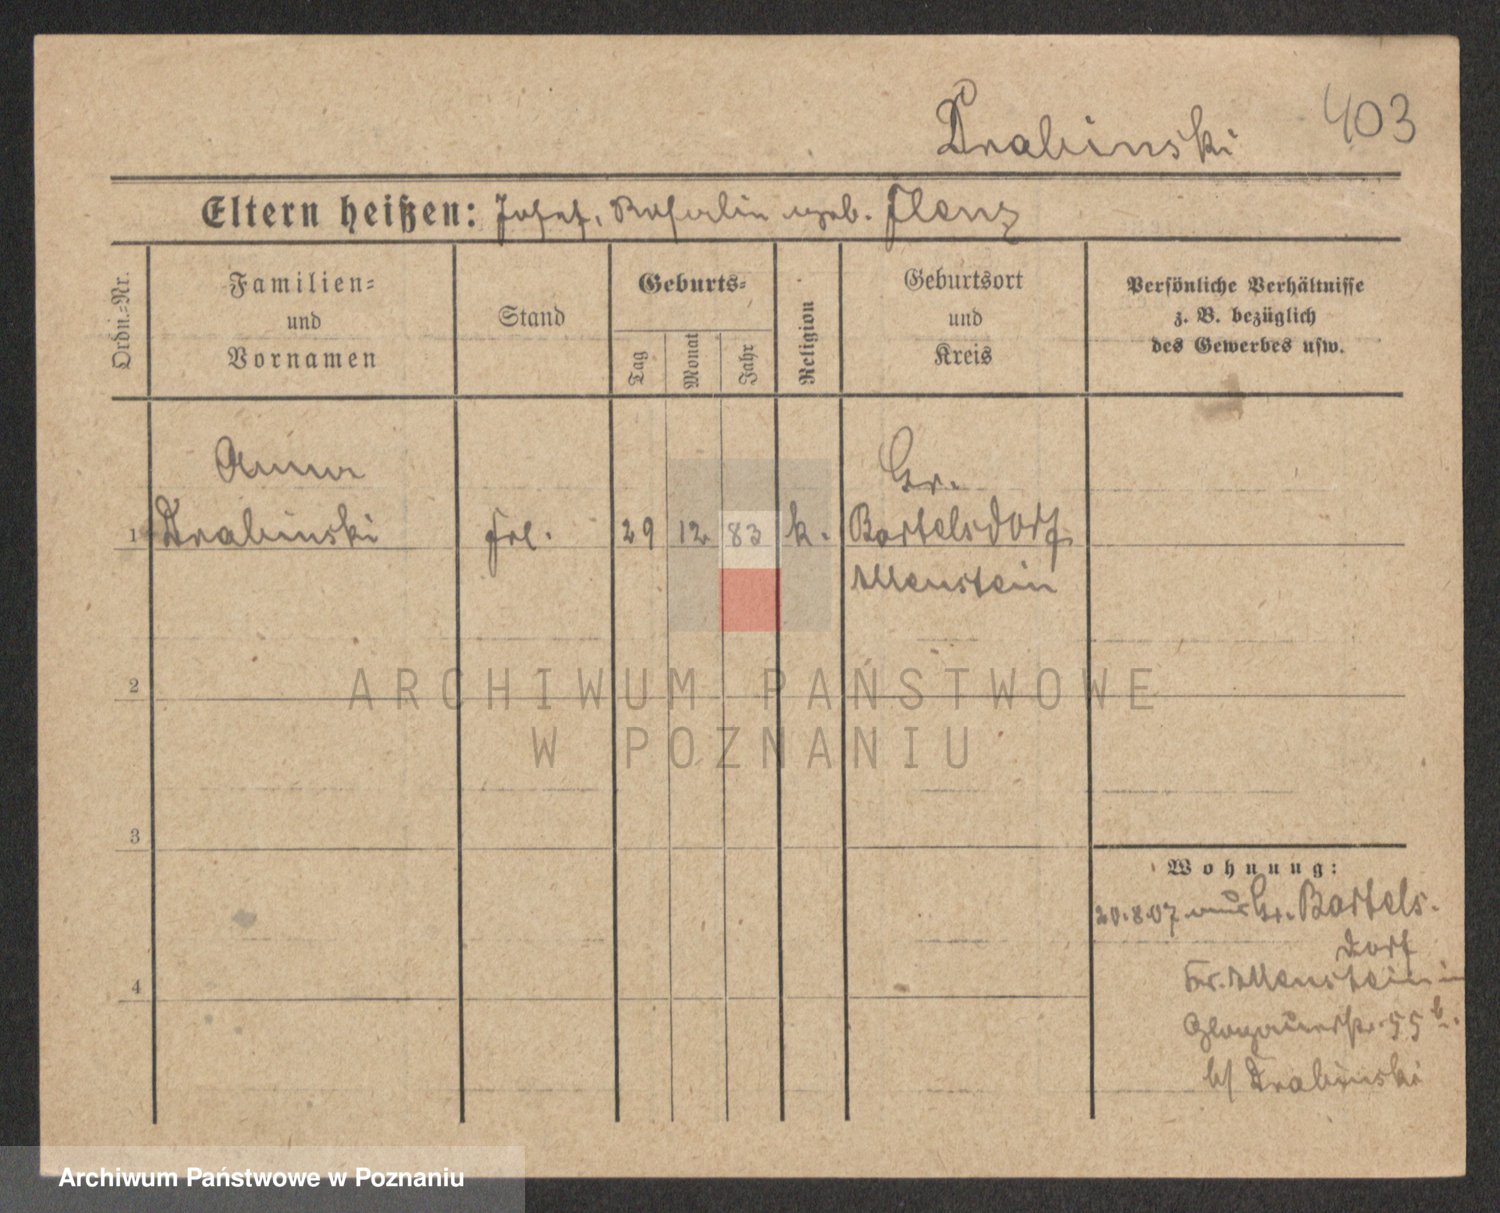 403
Drabinski
Eltern heißen: Josef, Rosalie geb. Flanz
Ordn.-Nr.
Familien-
und
Vornamen
Stand
Geburts-
Tag
Monat
Jahr
Religion
Geburtsort
und
Kreis
Persönliche Verhältnisse
z. B. bezüglich
des Gewerbes usw.
Anna
Gr.
1 Drabinski Frl. 29 12 83 k. Bartelsdorf
Allenstein
2
ARCHIWUM PAŃSTWOWE
W POZNANIU
3
Wohnung:
20.8.07 aus Gr. Bartels-
dorf
Kr. Allenstein in
4
Glogauerstr. 55 b.
b/ Drabinski
Archiwum Państwowe w Poznaniu